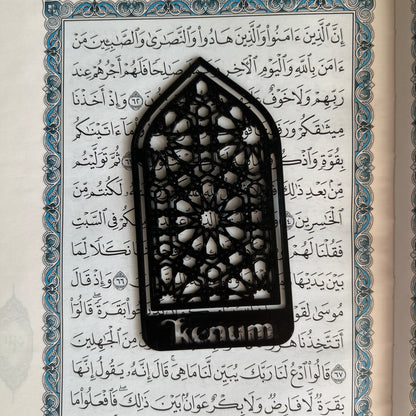 إِنَّ ٱلَّذِينَ ءَامَنُوا۟ وَٱلَّذِينَ هَادُوا۟ وَٱلنَّصَٰرَىٰ وَٱلصَّٰبِـِٔينَ مَنْ
ءَامَنَ بِٱللَّهِ وَٱلْيَوْمِ ٱلْءَاخِرِ صَٰلِحًا فَلَهُمْ أَجْرُهُمْ عِندَ
رَبِّهِمْ وَلَا خَوْفٌ ٦٢ وَإِذْ أَخَذْنَا
مِيثَٰقَكُمْ مَآ ءَاتَيْنَٰكُم
بِقُوَّةٍ وَٱذْكُ ٦٣ ثُمَّ تَوَلَّيْتُم
مِّنۢ بَعْدِ ذَٰلِكَ لَكُنتُم مِّنَ
ٱلْخَٰسِرِينَ ٦٤ كُمْ فِى ٱلسَّبْتِ
فَقُلْنَا لَهُمْ نَكَٰلًا لِّمَا
بَيْنَ يَدَيْهَا ٦٦ وَإِذْ قَالَ
مُوسَىٰ لِقَوْ بَقَرَةً قَالُوٓا۟
أَتَتَّخِذُنَا مِنَ ٱلْجَٰهِلِينَ
konum
٦٧ قَالُوا۟ ٱدْعُ لَنَا رَبَّكَ يُبَيِّن لَّنَا مَا هِىَ قَالَ إِنَّهُۥ يَقُولُ إِنَّهَا
بَقَرَةٌ لَّا فَارِضٌ وَلَا بِكْرٌ عَوَانٌۢ بَيْنَ ذَٰلِكَ فَٱفْعَلُوا۟ مَا